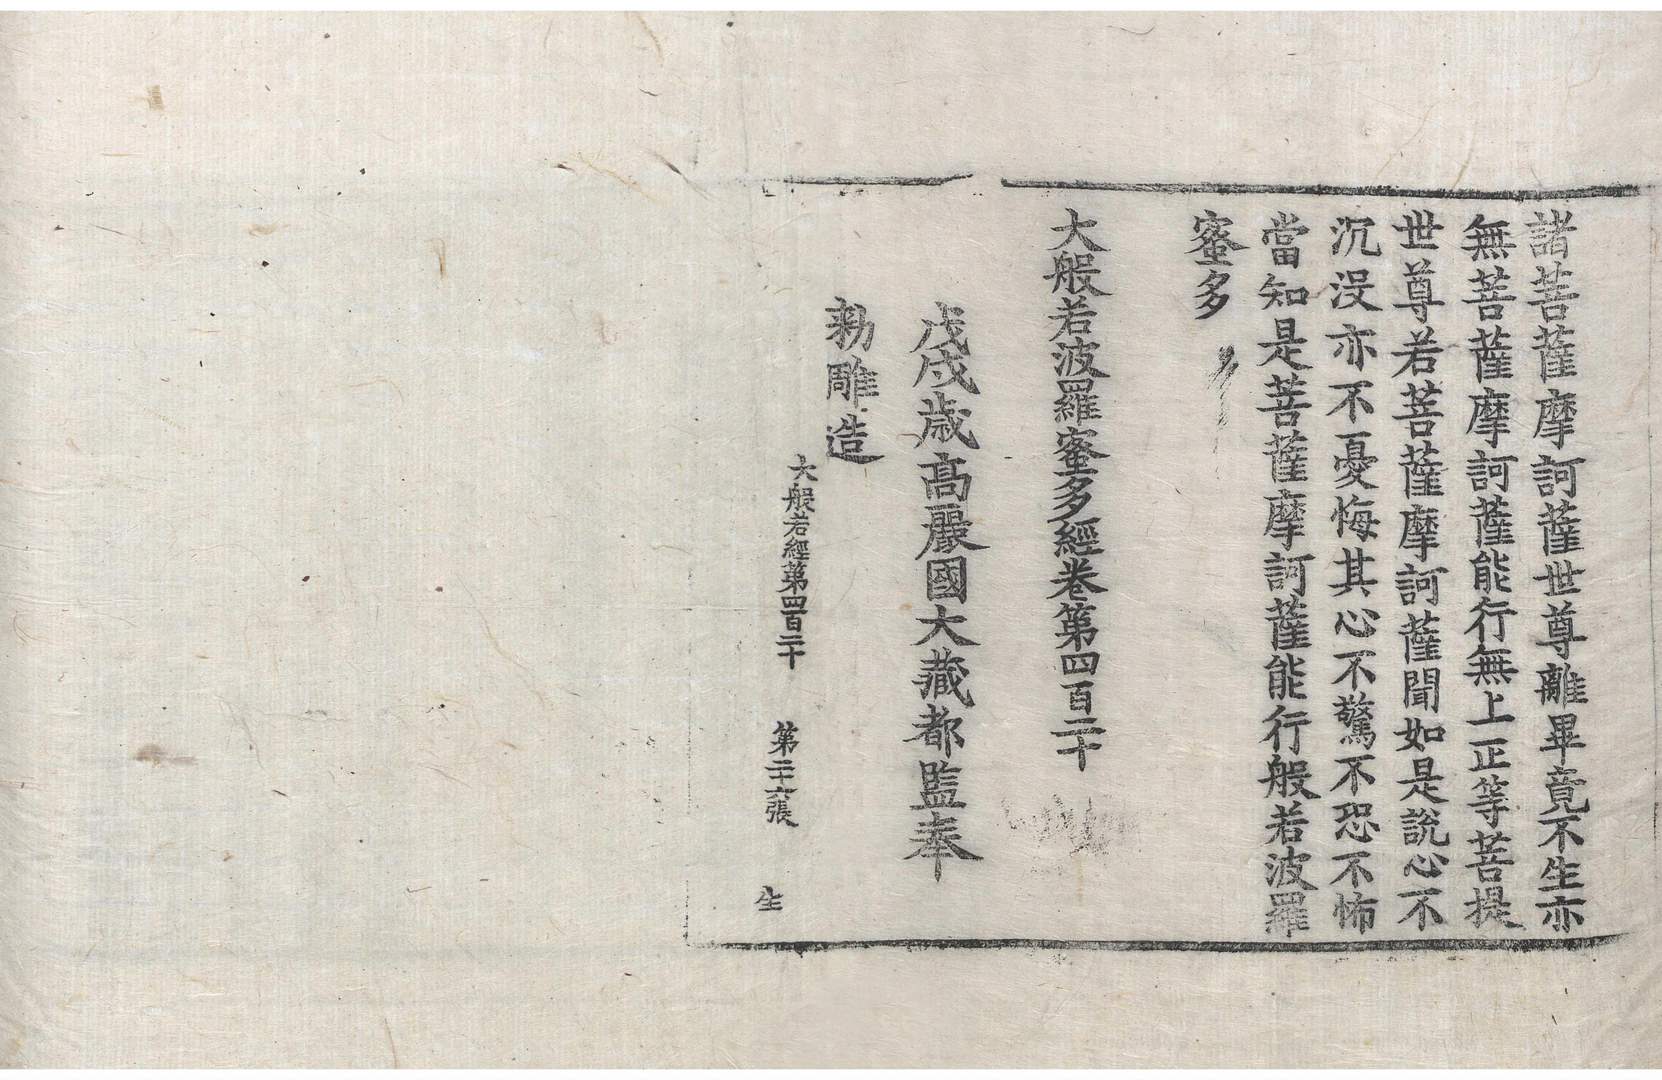 諸菩薩摩訶薩世尊離畢竟不生亦
無菩薩摩訶薩能行無上正等菩提
世尊若菩薩摩訶薩聞如是說心不
沉没亦不憂悔其心不驚不恐不怖
當知是菩薩摩訶薩能行般若波羅
蜜多
大般若波羅蜜多經卷第四百二十
戊戌歲高麗國大藏都監奉
勅雕造
大般若經第四百二十 第二十六張 生